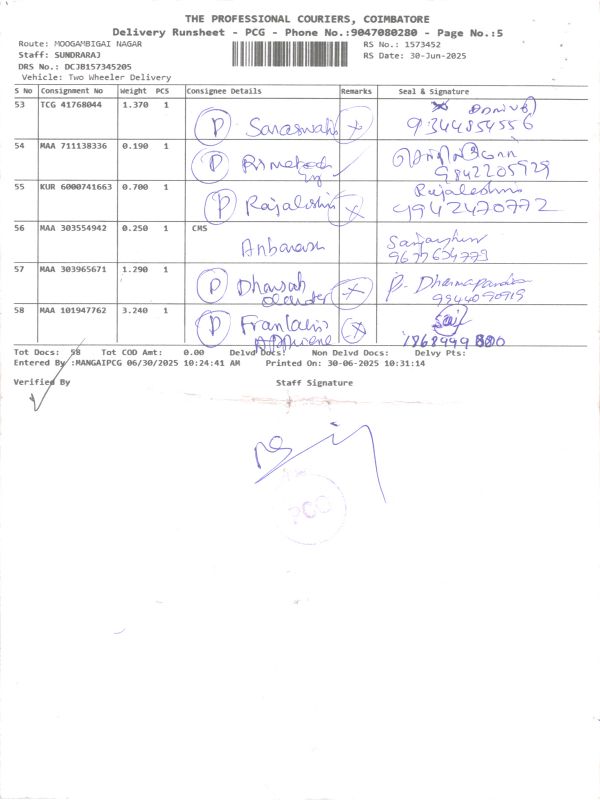 THE PROFESSIONAL COURIERS, COIMBATORE
Delivery Runsheet - PCG - Phone No.:9047080280 - Page No.:5
Route: MOOGAMBIGAI NAGAR
Staff: SUNDRARAJ
DRS No.: DCJB157345205
Vehicle: Two Wheeler Delivery
RS No.: 1573452
RS Date: 30-Jun-2025
S No Consignment No Weight PCS Consignee Details Remarks Seal & Signature
53 TCG 41768044 1.370 1 P Saraswathi
9344854556
54 MAA 711138336 0.190 1 P
9842205929
55 KUR 6000741663 0.700 1 P Rajaleshmi Rajaleshmi
9942470772
56 MAA 303554942 0.250 1 CMS
Anbarasu
9677634779
57 MAA 303965671 1.290 1 P P. Dharmapandia
9944090919
58 MAA 101947762 3.240 1 P
Tot Docs: 58 Tot COD Amt: 0.00 Delvd Docs: Non Delvd Docs: Delvy Pts:
Entered By :MANGAIPCG 06/30/2025 10:24:41 AM Printed On: 30-06-2025 10:31:14
Verified By Staff Signature
PCO